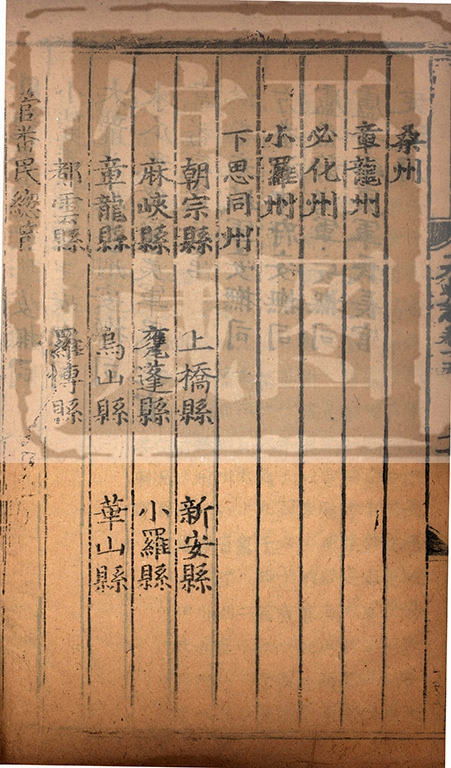 桑州
章龍州
必化州
小羅州
下思同州
朝宗縣 上橋縣 新安縣
麻峽縣 甕蓬縣 小羅縣
章龍縣 烏山縣 華山縣
都雲縣 羅博縣
管番民總管